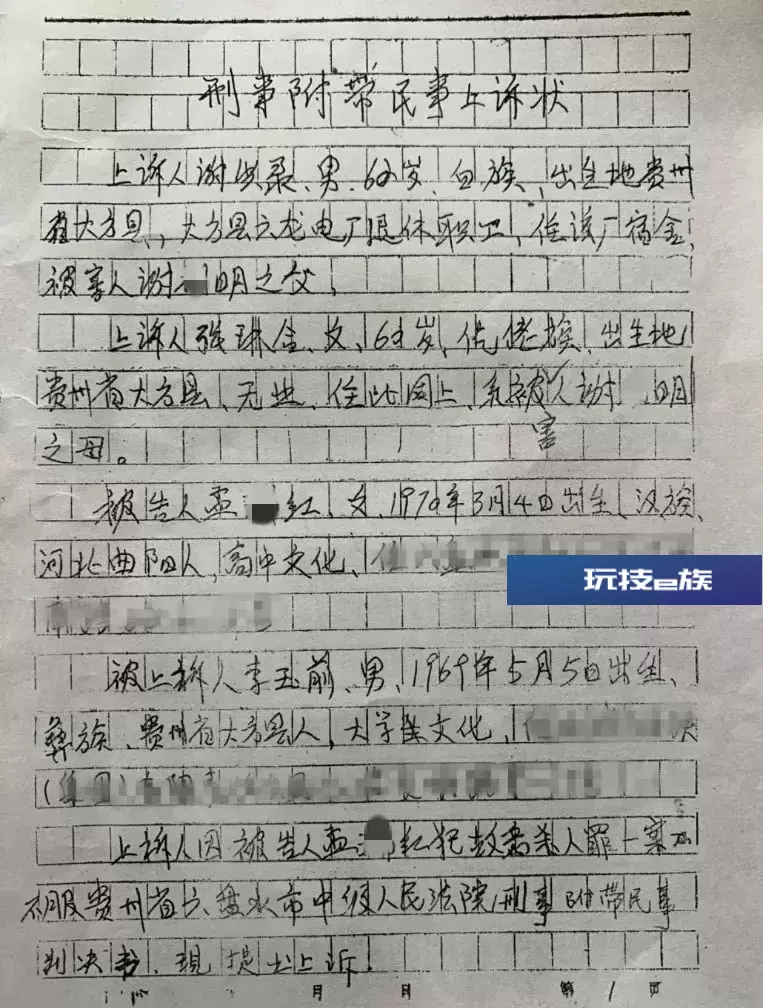 刑事附带民事上诉状
上诉人谢洪录、男、62岁、白族、出生地贵州
省大方县,、大方县六龙电厂退休职工、住该厂宿舍、
被害人谢 明之父,
上诉人张琳全、女、62岁、仡佬族、出生地
贵州省大方县、无业、住址同上、系被害人谢 明
之母。
被告人孟 红、女、1970年3月4日出生、汉族、
河北曲阳人,高中文化、住
玩技e族
被上诉人李玉前、男、1969年5月5日出生、
彝族、贵州省大方县人,大学文化、住
(集团)
上诉人因被告人孟 红犯故意杀人罪一案
不服贵州省六盘水市中级人民法院刑事附带民事
判决书、现提出上诉!
月 日 第1页